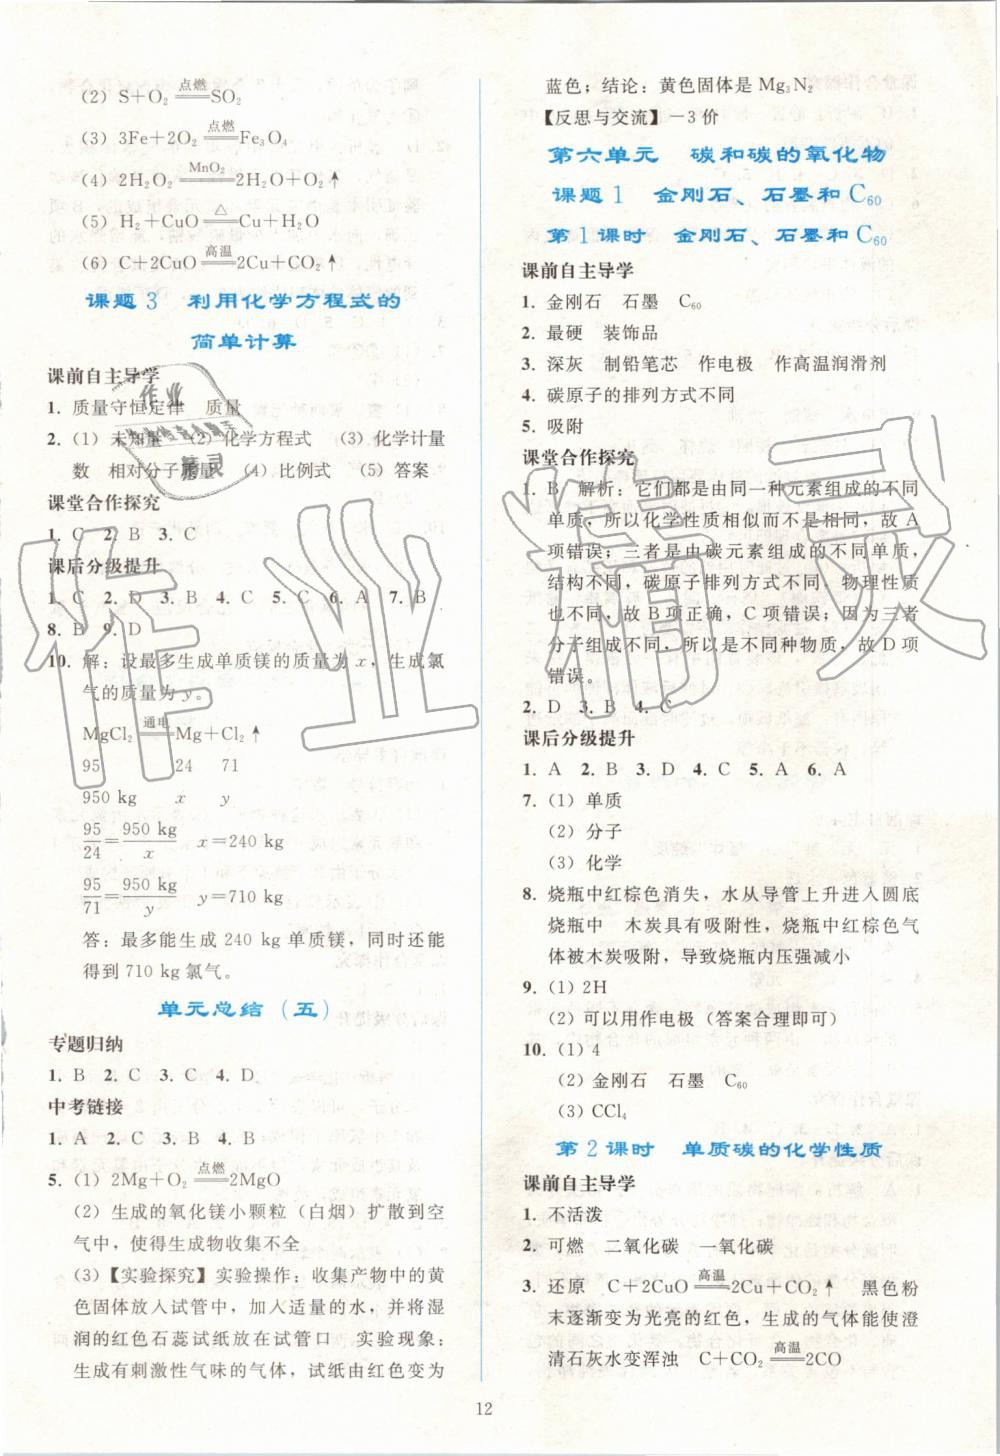 (2) S+O₂ 点燃═ SO₂
(3) 3Fe+2O₂ 点燃═ Fe₃O₄
(4) 2H₂O₂ MnO₂═ 2H₂O+O₂↑
(5) H₂+CuO △═ Cu+H₂O
(6) C+2CuO 高温═ 2Cu+CO₂↑
课题 3 利用化学方程式的
简单计算
课前自主导学
1. 质量守恒定律 质量
2. (1) 未知量 (2) 化学方程式 (3) 化学计量
数 相对分子质量 (4) 比例式 (5) 答案
课堂合作探究
1. C 2. B 3. C
课后分级提升
1. C 2. D 3. B 4. C 5. C 6. A 7. B
8. B 9. D
10. 解：设最多生成单质镁的质量为 x，生成氯
气的质量为 y。
MgCl₂ 通电═ Mg+Cl₂↑
95 24 71
950 kg x y
95/24=950 kg/x x=240 kg
95/71=950 kg/y y=710 kg
答：最多能生成 240 kg 单质镁，同时还能
得到 710 kg 氯气。
单元总结（五）
专题归纳
1. B 2. C 3. C 4. D
中考链接
1. A 2. C 3. B 4. B
5. (1) 2Mg+O₂ 点燃═ 2MgO
(2) 生成的氧化镁小颗粒（白烟）扩散到空
气中，使得生成物收集不全
(3)【实验探究】实验操作：收集产物中的黄
色固体放入试管中，加入适量的水，并将湿
润的红色石蕊试纸放在试管口 实验现象：
生成有刺激性气味的气体，试纸由红色变为
蓝色；结论：黄色固体是 Mg₃N₂
【反思与交流】−3 价
第六单元 碳和碳的氧化物
课题 1 金刚石、石墨和 C₆₀
第 1 课时 金刚石、石墨和 C₆₀
课前自主导学
1. 金刚石 石墨 C₆₀
2. 最硬 装饰品
3. 深灰 制铅笔芯 作电极 作高温润滑剂
4. 碳原子的排列方式不同
5. 吸附
课堂合作探究
1. B 解析：它们都是由同一种元素组成的不同
单质，所以化学性质相似而不是相同，故 A
项错误；三者是由碳元素组成的不同单质，
结构不同，碳原子排列方式不同，物理性质
也不同，故 B 项正确，C 项错误；因为三者
分子组成不同，所以是不同种物质，故 D 项
错误。
2. D 3. B 4. C
课后分级提升
1. A 2. B 3. D 4. C 5. A 6. A
7. (1) 单质
(2) 分子
(3) 化学
8. 烧瓶中红棕色消失，水从导管上升进入圆底
烧瓶中 木炭具有吸附性，烧瓶中红棕色气
体被木炭吸附，导致烧瓶内压强减小
9. (1) 2H
(2) 可以用作电极（答案合理即可）
10. (1) 4
(2) 金刚石 石墨 C₆₀
(3) CCl₄
第 2 课时 单质碳的化学性质
课前自主导学
1. 不活泼
2. 可燃 二氧化碳 一氧化碳
3. 还原 C+2CuO 高温═ 2Cu+CO₂↑ 黑色粉
末逐渐变为光亮的红色，生成的气体能使澄
清石灰水变浑浊 C+CO₂ 高温═ 2CO
12
作业精灵